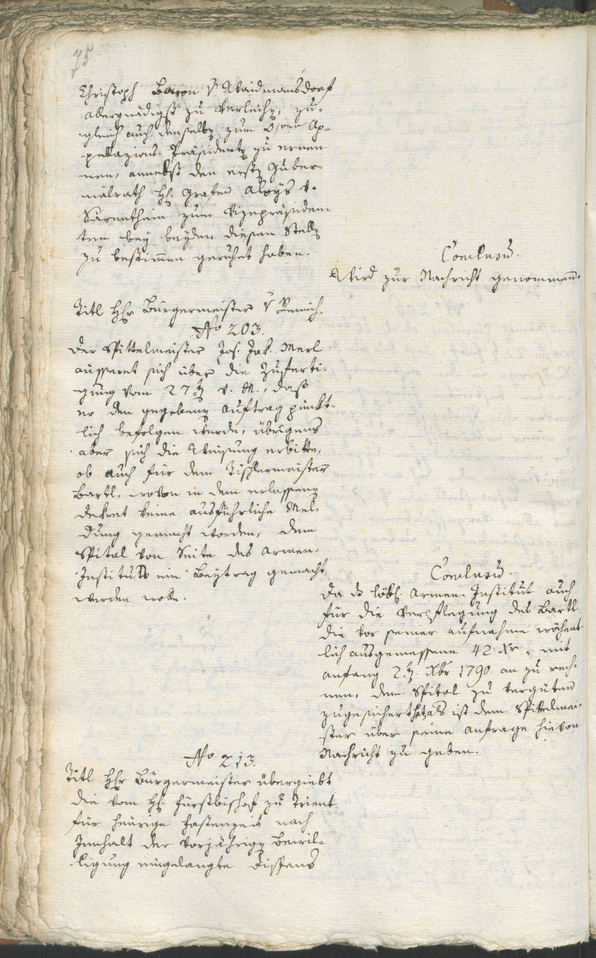 75
Christoph Baron v Waidmansdorf
allergnädigst zu verleihen, zu-
gleich auch denselben zum Ap-
pellazions Präsidenten zu ernen
nen, annebst den ersten Guber
nialrath H. Grafen Aloys v.
Sarenthein zum Vizepräsiden
ten bey beyden diesen Stellen
zu bestimmen geruhet haben.
Conclusum.
Wird zur Nachricht genommen.
Titl Hr Bürgermeister v
No 203.
Der Spittelmeister Jos. Jak. Merl
äussert sich über die Zuferti-
gung vom 27ten v. M., daß
er den gegebenen Auftrag pünkt-
lich befolgen werde, übrigens
aber sich die Weisung erbitte,
ob auch für dem Tischlermeister
Bartl, wovon in dem erlassenen
Dekret keine ausführliche Mel-
dung gemacht worden, dem
Spital von Seite des Armen-
Instituts ein Beytrag gemacht
werden wolle.
Conclusum.
Da das löbl. Armen Institut auch
für die Verpflegung des Bartl
die vor seiner Aufnahme wöchent
lich ausgemessene 42 Xr, mit
Anfang 2ten Xbr 1790 an zu rech-
nen, dem Spital zu vergüten
zugesichert hat, als ist dem Spittelmei-
ster über seine Anfrage hievon
Nachricht zu geben.
No 213.
Titl Hr Bürgermeister übergiebt
die vom H. Fürstbischof zu Trient
für heurige Fastenzeit nach
Innhalt der vorjährigen Bewil-
ligung eingelangte Dispens